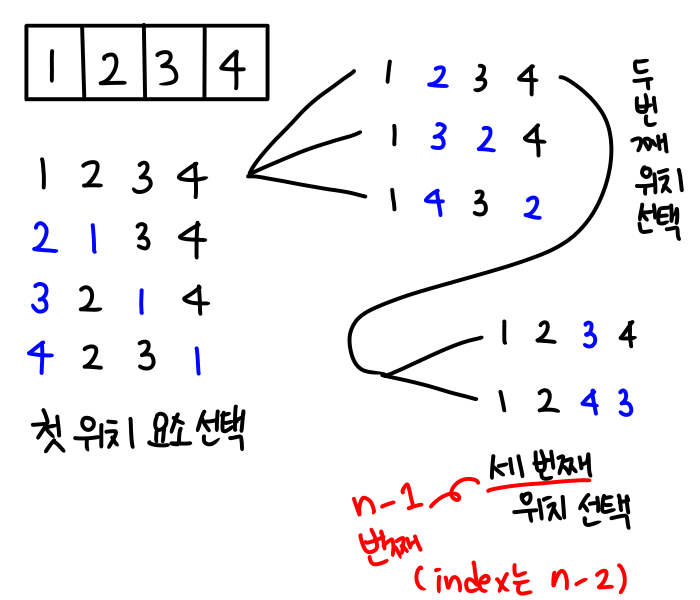 1 2 3 4
1 2 3 4
2 1 3 4
3 2 1 4
4 2 3 1
첫 위치 요소 선택
1 2 3 4
1 3 2 4
1 4 3 2
두
번
째
위치
선택
1 2 3 4
1 2 4 3
세 번째
위치 선택
n-1
번째
(index는 n-2)